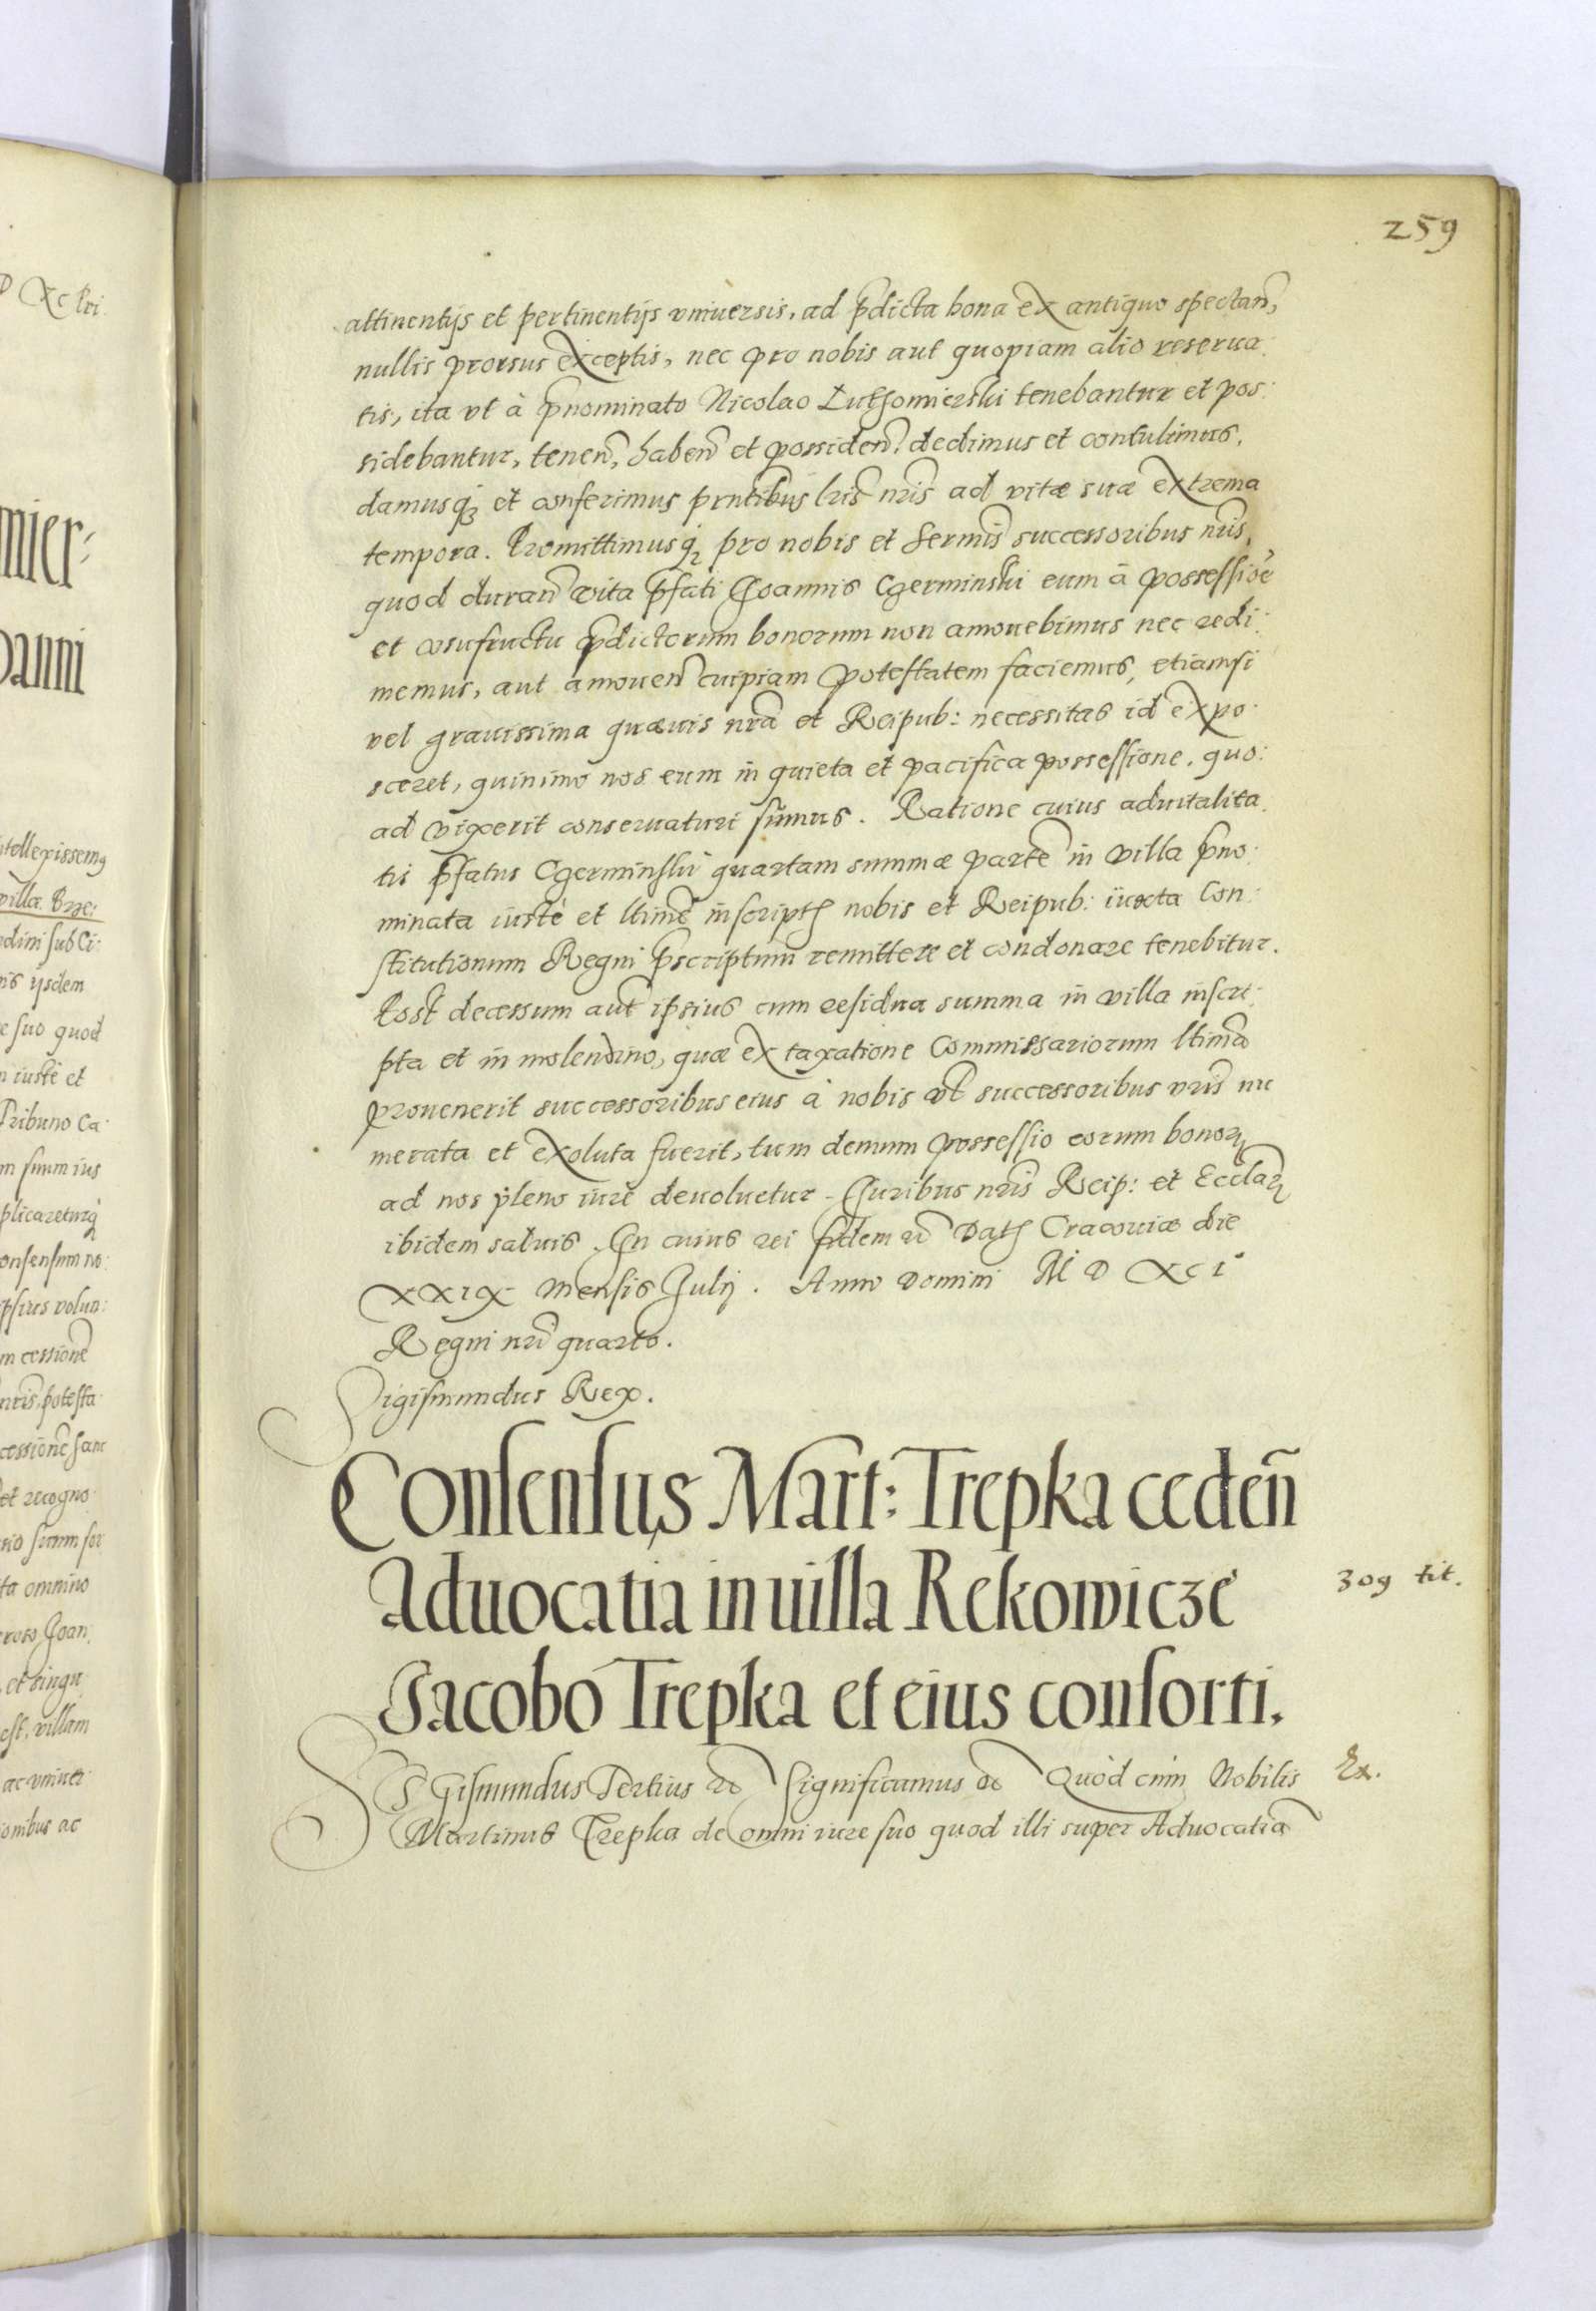 259
attinentijs et pertinentijs vniuersis, ad p̄dicta bona ex antiquo spectan̄,
nullis prorsus exceptis, nec pro nobis aut quopiam alio reserua:
tis, ita vt à p̄nominato Nicolao Luthomierski tenebantur et pos:
sidebantur, tenen̄, haben̄ et possiden̄. dedimus et contulimus,
damusq́ꝫ et conferimus pr̄ntibus lr̄is nr̄is ad vitæ suæ extrema
tempora. Promittimusq́ꝫ pro nobis et Sermīs successoribus nr̄is,
quod duran̄ vita p̄fati Joannis Czerminski eum à possessiōe
et vsufructu p̄dictorum bonorum non amouebimus nec redi:
memus, aut amouen̄ cuipiam potestatem faciemus, etiamsi
vel grauissima quæuis nrā et Reipub: necessitas id expo:
sceret, quinimo nos eum in quieta et pacifica possessione, quo:
ad vixerit conseruaturi sumus. Ratione cuius aduitalita:
tis p̄fatus Czerminski quartam summæ partē in villa p̄no:
minata iustè et ltimē inscriptæ nobis et Reipub: iuxta Con:
stitutionum Regni p̄scriptum remittere et condonare tenebitur.
Post decessum aut̄ ipsius cum residua summa in villa inscri:
pta et in molendino, quæ ex taxatione Commissariorum ltimā
prouenerit successoribus eius à nobis vt̄ successoribus nr̄is nu
merata et exoluta fuerit, tum demum possessio eorum bonorꝫ
ad nos pleno iure deuoluetur. Juribus nr̄is Reip: et Ecclarꝫ
ibidem saluis. In cuius rei fidem &c̄ Datꝫ Cracouiæ die
XXIX Mensis Julij. Anno Domini M D XCI
Regni nr̄i quarto.
Sigismundus Rex.
Consensus Mart: Trepka ceden̄
Aduocatia in uilla Rekowicze
309 tit.
Jacobo Trepka et eius consorti.
SIGismundus Tertius &c̄ Significamus &c̄ Quòd cùm Nobilis
Ex.
Martinus Trepka de omni iure suo quod illi super Aduocatiā